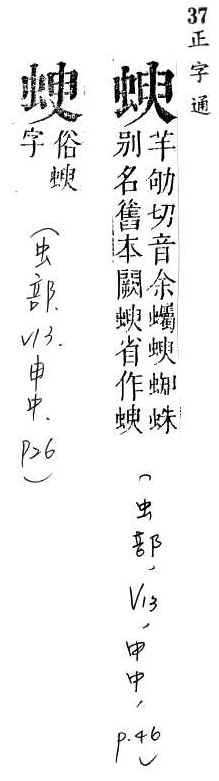 37 正字通
羊劬切音余蠾蜘蛛
別名舊本闕省作
(虫部, V13, 申中, p.46)
俗
字
(虫部. V13. 申中. P26)